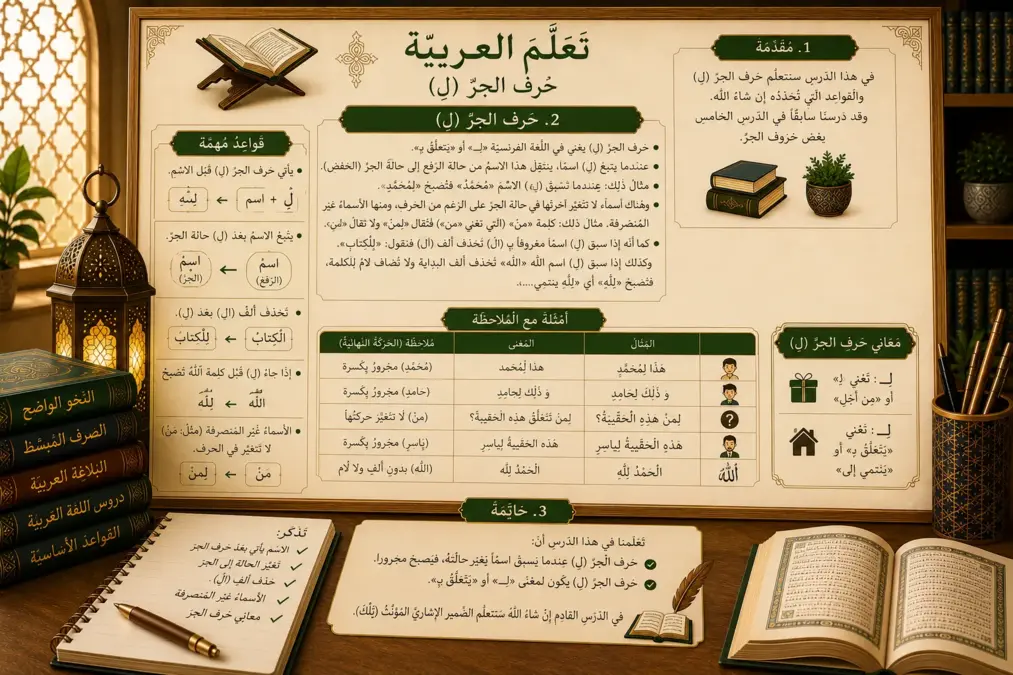 تَعَلَّمَ العربيّة
حُرف الجرَّ (لِ)
1. مُقَدِّمَة
في هذا الدَرسِ سنتعلُم حَرف الجرَّ (لِ)
والقواعِد الَّتي تُحَدَدُه إن شاءُ اللّه.
وقد دَرسنَا سابقًا في الدَرسِ الخامسِ
بعْض حَروف الجرَّ.
2. حَرف الجرَّ (لِ)
خرف الجرَّ (لِ) يغني في اللّغة الفرنسيَة «لِـ» أو «يَتعلَّقْ بِ».
عندما يتبعُ (لِ) اسمًا، ينتقِلُ هذا الاسمُ من حالة الرَفع إلى حالةُ الجرُ (الخفض).
مثال ذلِكَ: عِندما تَسبقَ (لِ) الاسْمَ «مُحَمَّدُ» فتُصبحُ «لِمُحمَّدٍ»
وهُناك أسماَء لا تتغَيَر آخرتُها في حالة الجرُ على الرَغم من الخرفِ، ومنها الأسماءُ غيَر
المُنصرفَة. مثال ذلكَ: كلِمة «منْ» (التي تغني «من») فتُقال «لِمنْ» ولا تقالَ
كما أنَه إذا سبق (لِ) اسمًا مَعْروفاً بِ (الْ) تُحَذف ألف (الَ) فنقول: «لِلْكِتابِ».
وكذلك إذا سبق (لِ) اسم الله «الله» تُحَذف ألف البداية ولا تُضاف لامُ للكلمة،
فتُصبحُ «لِلَّهِ» أي «لِلَّهِ ينتمِي....
قَواعِدُ مُهمَّة
يأتي حَرف الجرُ (لِ) قَبْل الاسْمِ.
لِ + اسم ← لِلَّهِ
يتْبعُ الاسمُ بعْدَ (لِ) حالَة الجرَّ.
اسمُ (الرَفعْ) ← اسمْ (الجْرُ)
تَحْذف ألفْ (لِ) بعْد (لِ).
الْكِتابُ ← لِلْكتابُ
إذَا جاءُ (لِ) قَبْل كلِمة اَللَّهُ تُصْبحُ
اللَّه ← لِلَّه
الأسماءُ غْيُر المْنصرفة (مثْل: مَنْ)
لا تَتَغيَر في الحرف.
مَنْ ← لِمنْ
أمْثلةَ مع الْمُلاحظَة
المِثَالُ | المْعْنى | مُلاحظَة (الحَرَكَةُ النَّهائيةُ)
هَذَا لِمُحَمَّدٍ | هذا لِمُحْمد | (مُحْمَّدِ) مجْرورُ بِكَسرة
وَ ذَلِكَ لِحَامِدٍ | وَ ذَلِكَ لِحامِد | (حامِدِ) مجْرورُ بِكَسرة
لِمنْ هَذِهِ الْحَقْيبَةُ؟ | لِمنْ تَتَعْلَّقُ هذِه الْحَقيبةُ؟ | (منْ) لَا تتَغْيَّر حركتُها
هَذِهِ الحَقْيبةُ لِيَاسِرٍ | هَذه الحَقيبةُ لِياسِر | (يَاسِرِ) مَجْرورُ بِكَسرة
الْحَمْدُ لِلَّهِ | الْحَمْدُ للّه | (اللّه) بدونِ ألفٍ ولا لَام
اللّٰه
مَعْاني حَرفِ الجرَّ (لِ)
لِــ : تَعْني لِـ»
أو «مِن أجَلِ»
لِــ : تَعْني
«يَتَعْلَّقُ بِـ» أو
«يَنْتَمي إلى»
3. خَاتِمَةَ
تَعْلَمنا في هذا الدَرسِ أنَ:
حَرف الْجَرَّ (لِ) عِندما يَسبقَ اسماً يَغيَر حالَتَهُ، فَيصبحَ مجرورا.
حَرف الجرَّ (لِ) يَكُون لمعْنى «لِــ» أو «يَتَعْلَّقُ بِ».
في الدَّرَسِ القادِمِ إنَّ شاءَ اللهُ سَنَتعلَّم الضُمير الإشاريَ المُؤنْتُ (تِلْكَ).
تَذكَر:
الاسْم يأتي بعْد حَرف الجرَ
تَغيَر الحالة إلى الجرَ
حَذف ألفِ (الْ).
الأسماءُ غْيُر المْنصرفة
معْاني حَرف الجرَ
النحو الواضح
الصرف المُبسَّط
البلاغة العربيَّة
دروس اللغة العَربية
القواعد الأساسيَّة